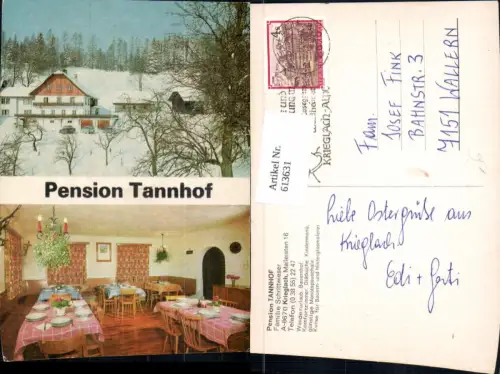 Pension Tannhof
Artikel Nr.
613631
KRIEGLACH-ALPL
Fam.
JOSEF FINK
BAHNSTR. 3
7151 WALLERN
Liebe Ostergrüße aus
Krieglach
Edi + Gerti
Pension TANNHOF
Familie Schrittwieser
A-8670 Krieglach, Malleisten 16
Telefon (0 38 55) 22 47